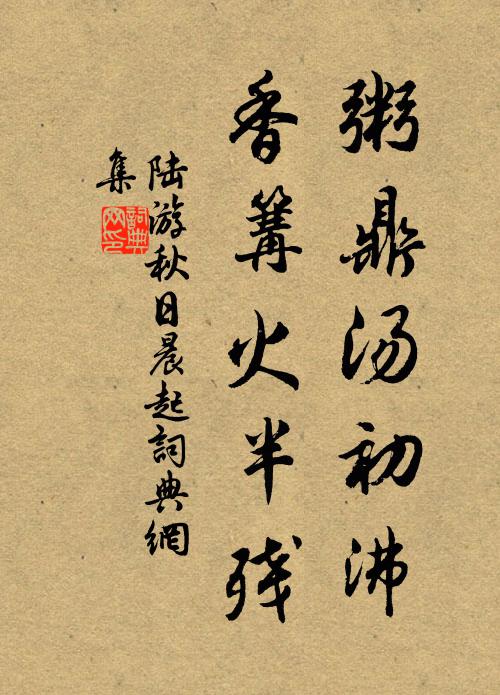 粥鼎汤初沸
香篝火半残
陆游秋日晨起詞典網
集
詞典
网印